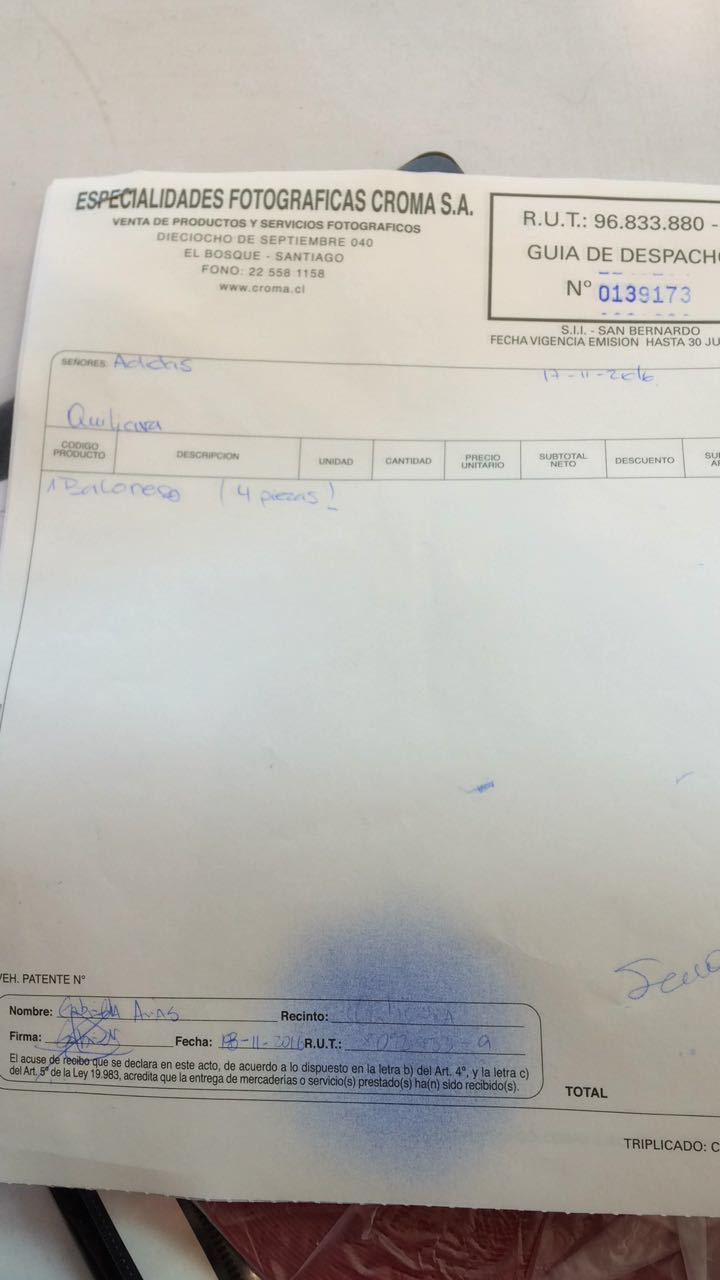 ESPECIALIDADES FOTOGRAFICAS CROMA S.A.
VENTA DE PRODUCTOS Y SERVICIOS FOTOGRAFICOS
DIECIOCHO DE SEPTIEMBRE 040
EL BOSQUE - SANTIAGO
FONO: 22 558 1158
www.croma.cl
R.U.T.: 96.833.880 -
GUIA DE DESPACHO
N° 0139173
S.I.I. - SAN BERNARDO
FECHA VIGENCIA EMISION HASTA 30 JU
SEÑORES: Adidas
17-11-2016
Quilicura
CODIGO PRODUCTO DESCRIPCION UNIDAD CANTIDAD PRECIO UNITARIO SUBTOTAL NETO DESCUENTO
1 Balonero (4 piezas)
VEH. PATENTE N°
Nombre: Arias Recinto:
Firma: Fecha: 18-11-2016 R.U.T.:
El acuse de recibo que se declara en este acto, de acuerdo a lo dispuesto en la letra b) del Art. 4°, y la letra c)
del Art. 5° de la Ley 19.983, acredita que la entrega de mercaderías o servicio(s) prestado(s) ha(n) sido recibido(s).
TOTAL
TRIPLICADO: C